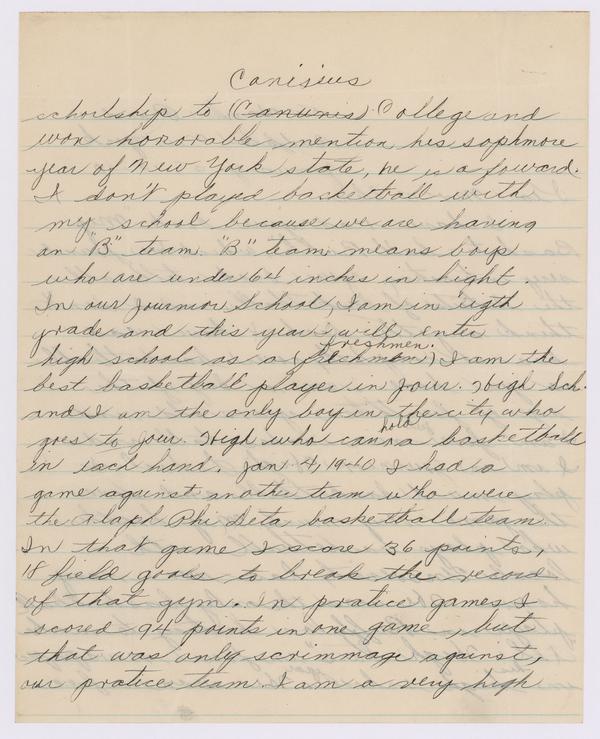 Canisius
schorlship to (Canunis) College and
won honorable mention his sophmore
year of New York state, he is a foward.
I don't played basketball with
my school because we are having
an "B" team. "B" team means boys
who are under 64 inches in hight.
In our Journior School, I am in eigth
grade and this year will enter
freshmen.
high school as a (frechmen) I am the
best basketball player in Jour. High Sch.
and I am the only boy in the city who
hold
goes to Jour. High who can a basketball
in each hand. Jan 4, 1940 I had a
game against another team who were
the Alaph Phi Deta basketball team
In that game I score 36 points,
18 field goals to break the record
of that gym. In pratice games I
scored 94 points in one game, but
that was only scrimmage against,
our pratice team. I am a very high